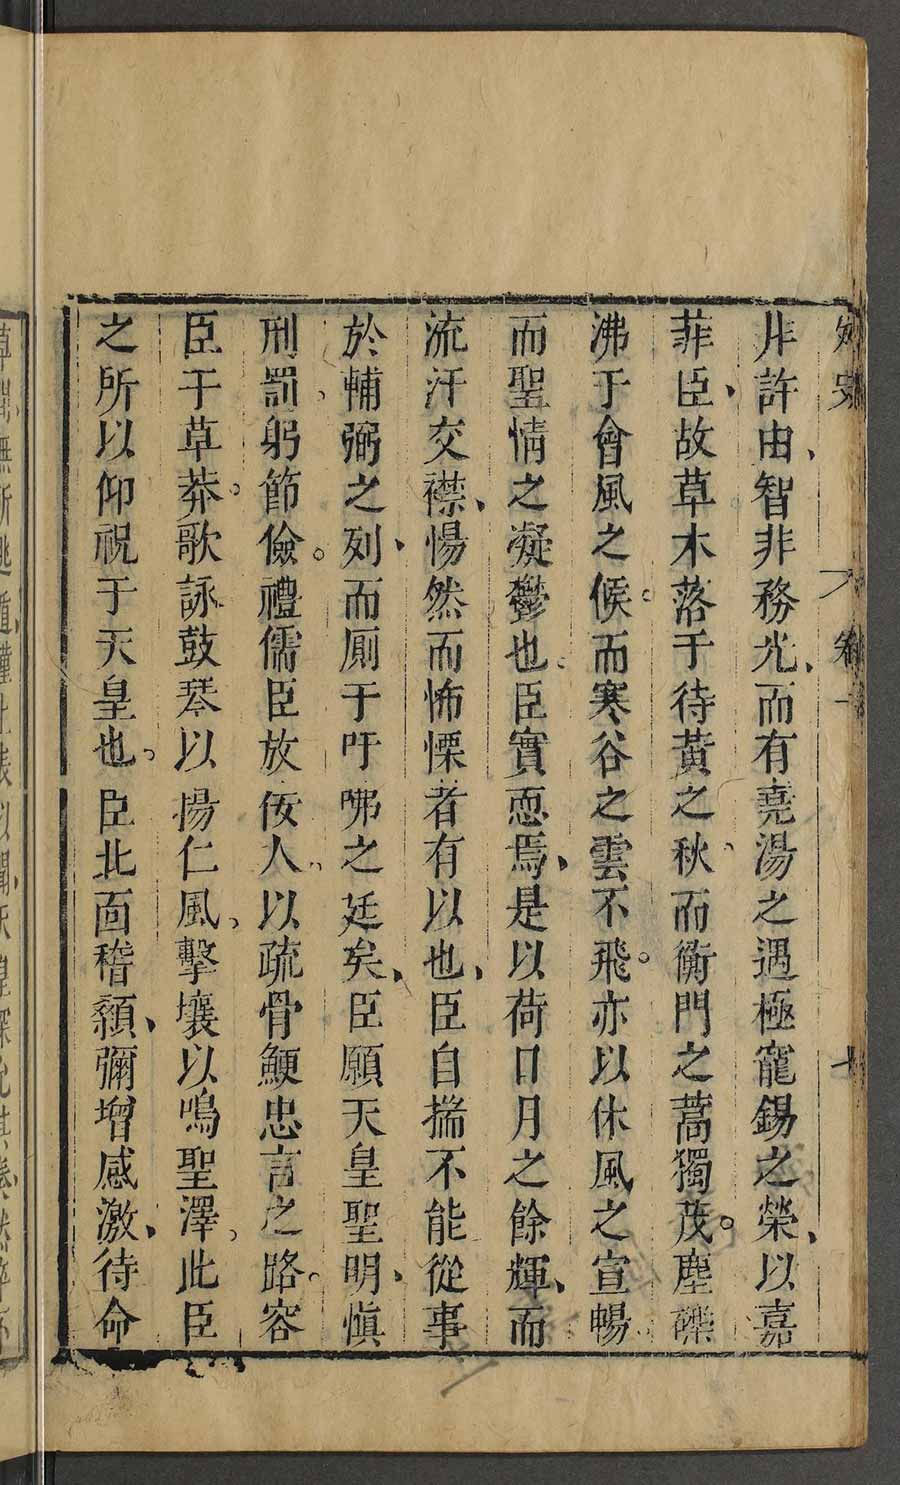 非許由、智非務光、而有堯湯之遇極寵錫之榮、以嘉
菲臣、故草木落于待黃之秋、而衡門之蒿獨茂。塵礫
沸于會風之候。而寒谷之雲不飛。亦以休風之宣暢
而聖情之凝鬱也。臣實恧焉、是以荷日月之餘輝、而
流汗交襟、惕然而怖慄者有以也、臣自揣不能從事
於輔弼之列、而厠于吁咈之廷矣、臣願天皇聖明、慎
刑罰、躬節儉。禮儒臣放佞人、以疏骨鯁忠言之路。容
臣于草莽。歌詠鼓琴以揚仁風、擊壤以鳴聖澤。此臣
之所以仰祝于天皇也。臣北面稽顙、彌增感激、待命